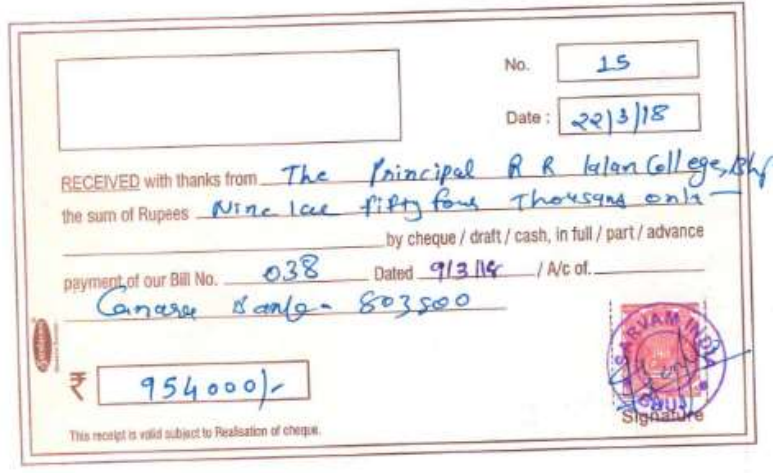 No. 15
Date : 22/3/18
RECEIVED with thanks from The Principal R R lalan College, Bhj
the sum of Rupees Nine lac fifty four Thousand only
by cheque / draft / cash, in full / part / advance
payment of our Bill No. 038 Dated 9/3/18 / A/c of.
Canara Bank - 803500
₹ 954000/-
SARVAM INDIA
Signature
This receipt is valid subject to Realisation of cheque.